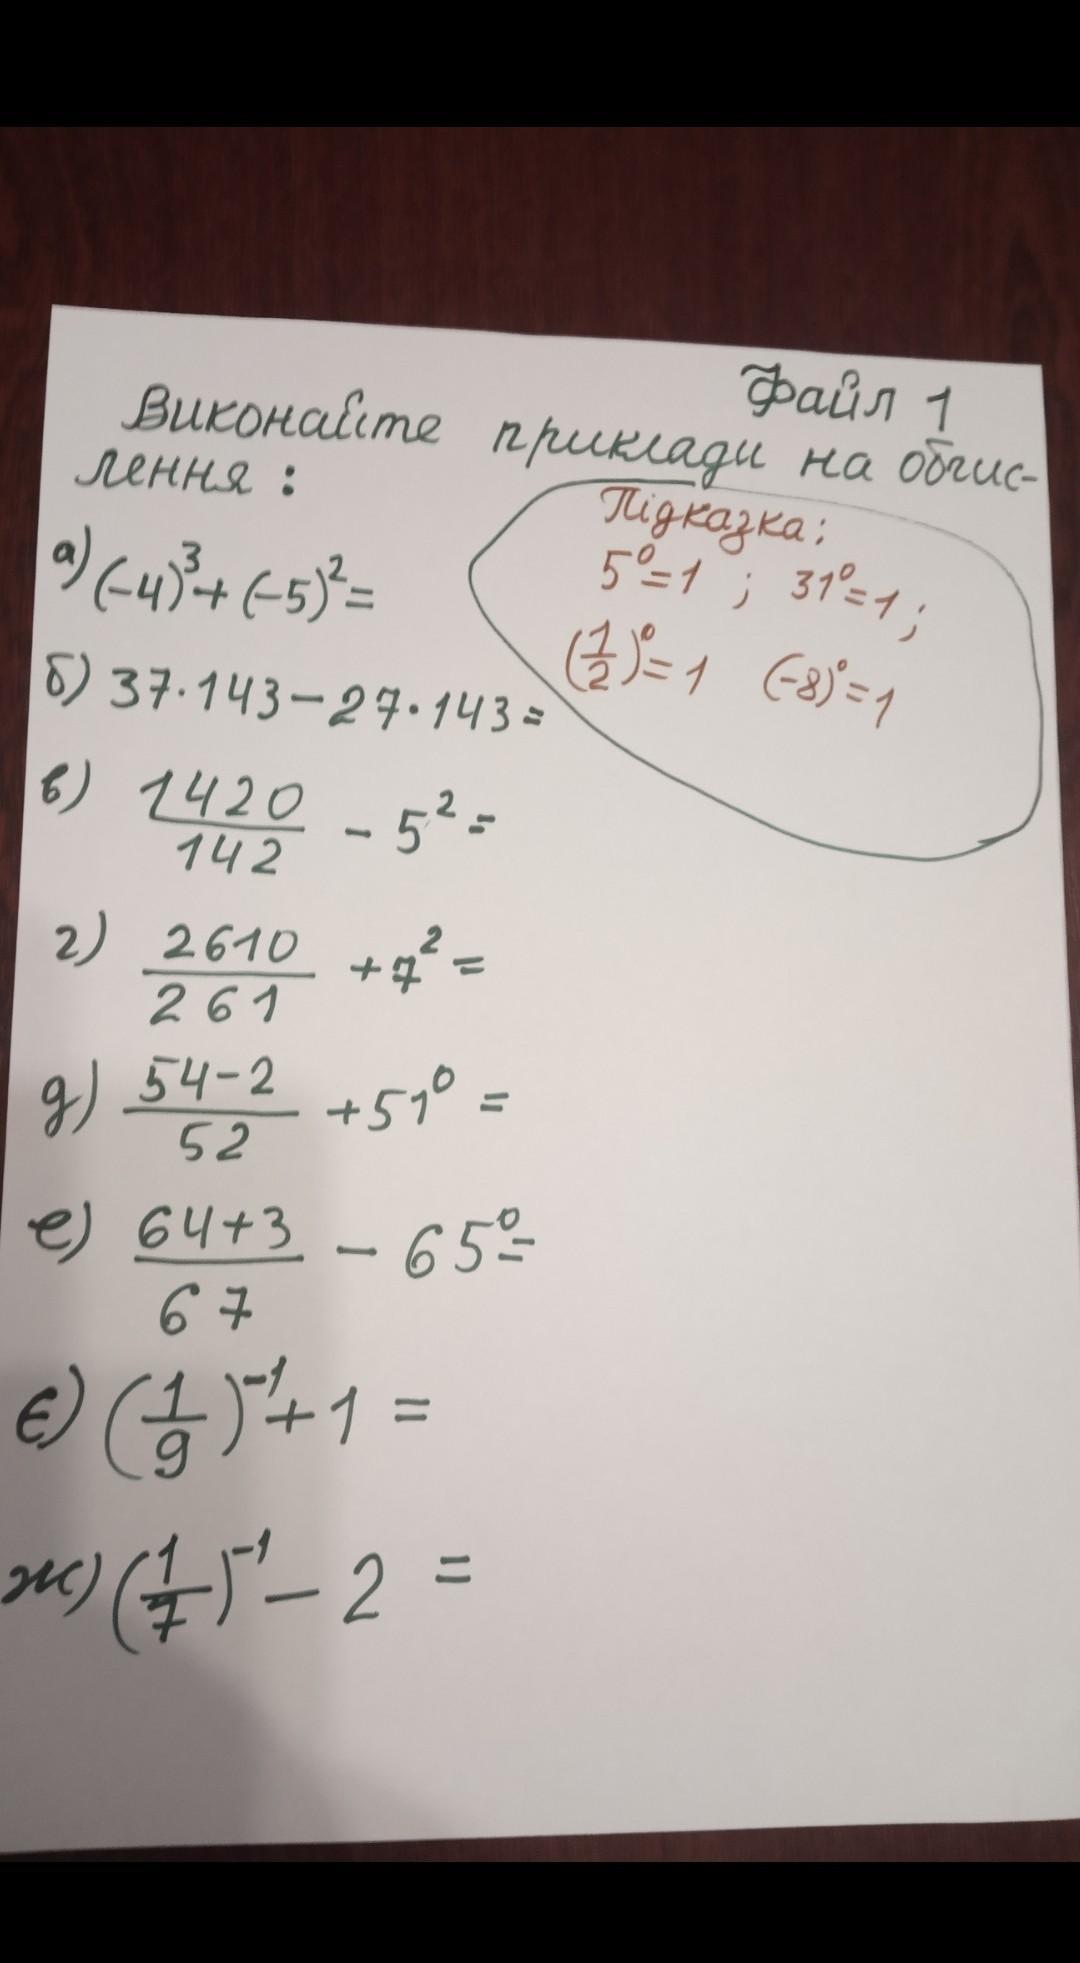 Файл 1
Виконайте приклади на обчис-
лення:
Підказка:
5⁰=1 ; 31⁰=1;
(1/2)⁰=1 (-8)⁰=1
а) (-4)³+(-5)²=
б) 37·143-27·143=
в) 1420/142 - 5²=
г) 2610/261 +7²=
д) 54-2/52 +51⁰ =
е) 64+3/67 - 65⁰=
є) (1/9)⁻¹+1 =
ж) (1/7)⁻¹-2 =